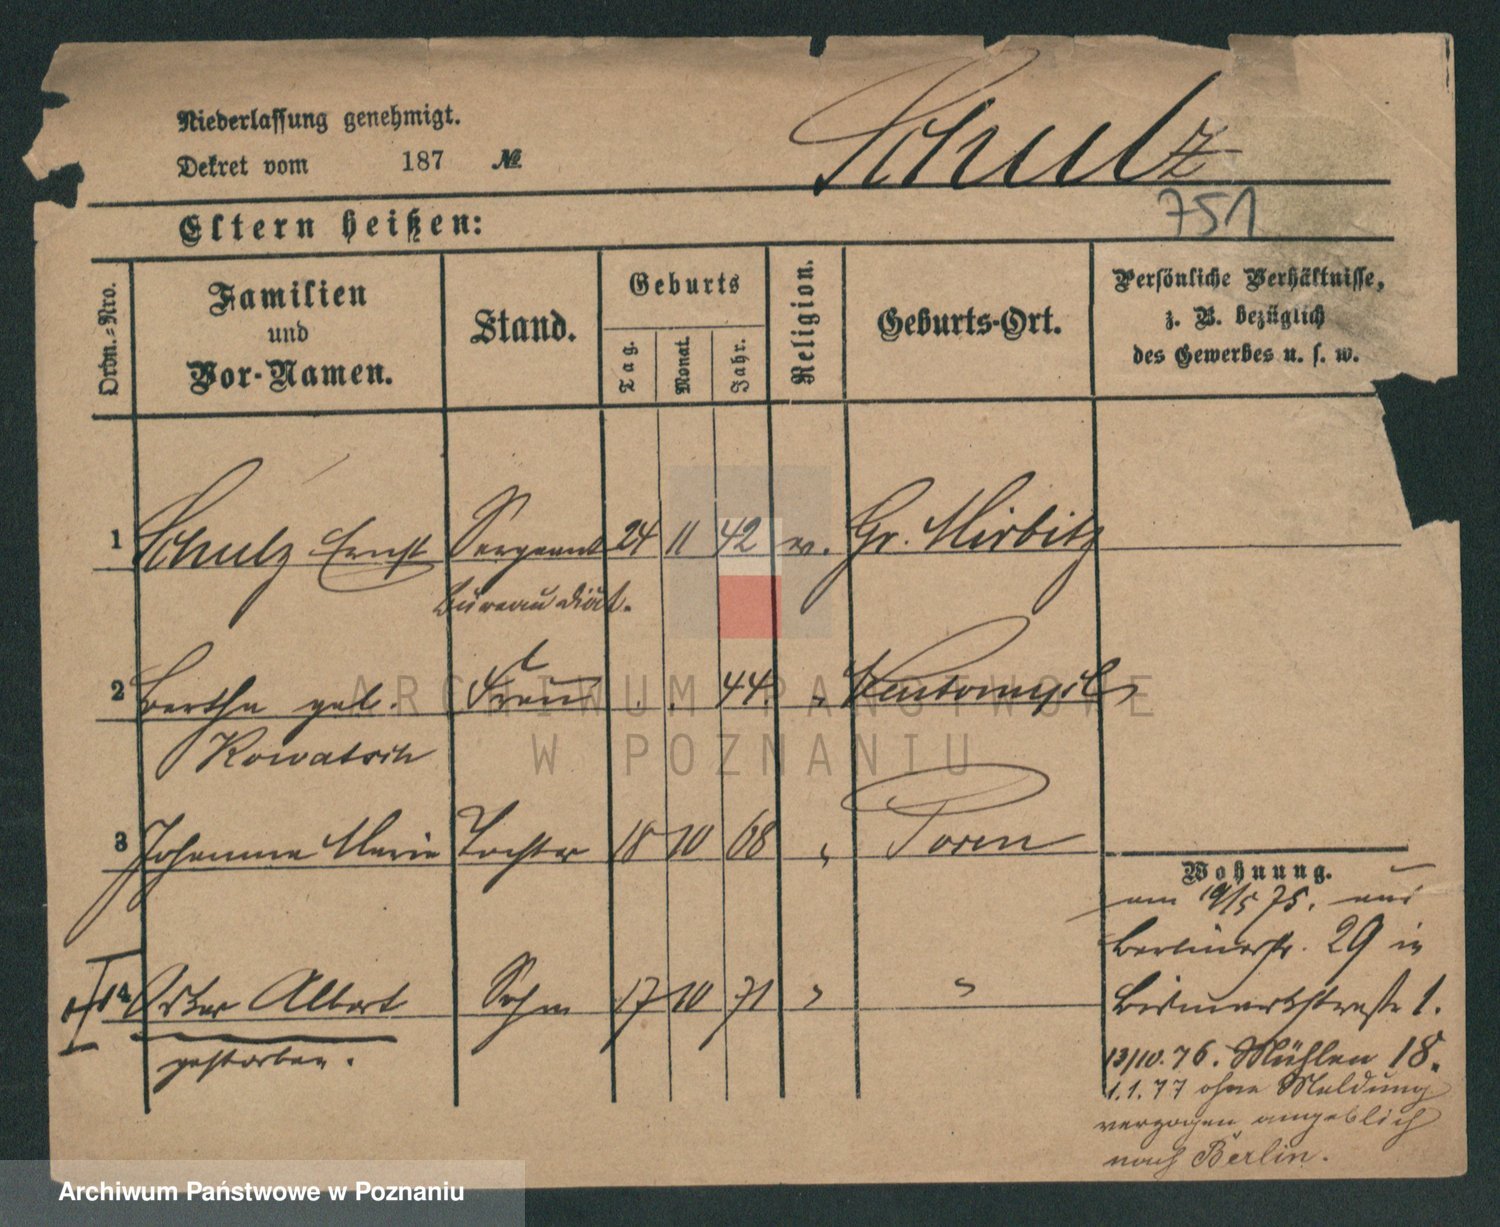 Niederlassung genehmigt.
Schulz
Dekret vom 187 №
751
Eltern heißen:
Ordn.-Nro.
Familien
und
Vor-Namen.
Stand.
Geburts
Tag.
Monat.
Jahr.
Religion.
Geburts-Ort.
Persönliche Verhältnisse,
z. B. bezüglich
des Gewerbes u. s. w.
1 Schulz Ernst Sergeant 24 11 42 ev. Gr.
Bureaudiät.
2 Bertha geb. Frau . . 44. " Neutomysl
Kowatsch
3 Johanna Marie Tochter 18 10 68 " Posen
Wohnung.
am 19/5 75. aus
Berlinerstr. 29 in
4 Oskar Albert Sohn 17 10 71 " "
Bismarckstraße 1.
gestorben.
13/10. 76. Mühlen 18.
1.1.77 ohne Meldung
verzogen angeblich
nach Berlin.
ARCHIWUM PAŃSTWOWE
W POZNANIU
Archiwum Państwowe w Poznaniu